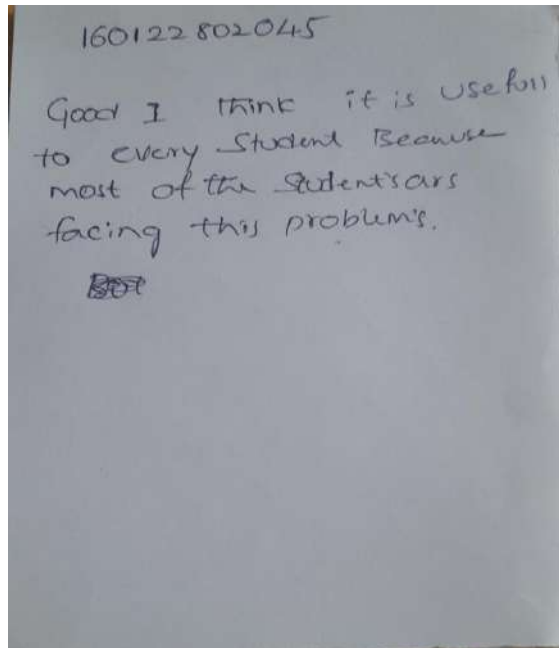 160122802045
Good I think it is usefull
to every Student Because
most of the Student's ars
facing this problem's.